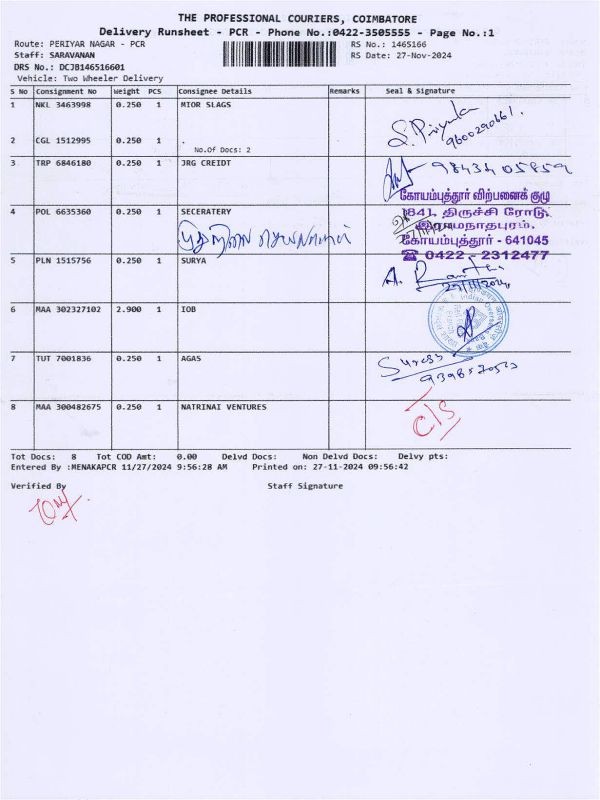 THE PROFESSIONAL COURIERS, COIMBATORE
Delivery Runsheet - PCR - Phone No.:0422-3505555 - Page No.:1
Route: PERIYAR NAGAR - PCR
RS No.: 1465166
Staff: SARAVANAN
RS Date: 27-Nov-2024
DRS No.: DCJB146516601
Vehicle: Two Wheeler Delivery
S No Consignment No Weight PCS Consignee Details Remarks Seal & Signature
1 NKL 3463998 0.250 1 MIOR SLAGS
S. Priyanka
9600290661.
2 CGL 1512995 0.250 1 .
No.Of Docs: 2
3 TRP 6846180 0.250 1 JRG CREIDT
98434 05859
கோயம்புத்தூர் விற்பனைக் குழு
4 POL 6635360 0.250 1 SECERATERY
1841, திருச்சி ரோடு,
இராமநாதபுரம்,
கோயம்புத்தூர் - 641045
☎ 0422 - 2312477
5 PLN 1515756 0.250 1 SURYA
6 MAA 302327102 2.900 1 IOB
7 TUT 7001836 0.250 1 AGAS
Suresh
8 MAA 300482675 0.250 1 NATRINAI VENTURES
C/S
Tot Docs: 8 Tot COD Amt: 0.00 Delvd Docs: Non Delvd Docs: Delvy pts:
Entered By :MENAKAPCR 11/27/2024 9:56:28 AM Printed on: 27-11-2024 09:56:42
Verified By Staff Signature